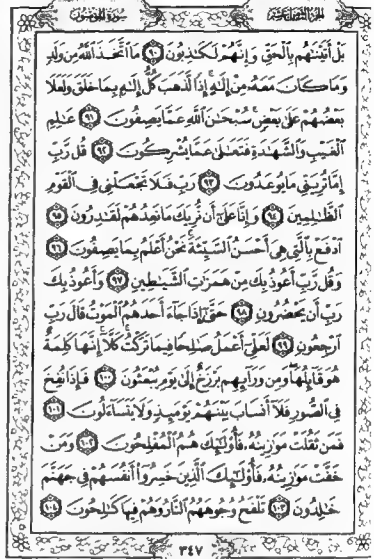 الجزء الثامن عشر سورة المؤمنون
بَلْ أَتَيْنَٰهُم بِٱلْحَقِّ وَإِنَّهُمْ لَكَٰذِبُونَ ٩٠ مَا ٱتَّخَذَ ٱللَّهُ مِن وَلَدٍ
وَمَا كَانَ مَعَهُۥ مِنْ إِلَٰهٍ ۚ إِذًا لَّذَهَبَ كُلُّ إِلَٰهٍۭ بِمَا خَلَقَ وَلَعَلَا
بَعْضُهُمْ عَلَىٰ بَعْضٍ ۚ سُبْحَٰنَ ٱللَّهِ عَمَّا يَصِفُونَ ٩١ عَٰلِمِ
ٱلْغَيْبِ وَٱلشَّهَٰدَةِ فَتَعَٰلَىٰ عَمَّا يُشْرِكُونَ ٩٢ قُل رَّبِّ
إِمَّا تُرِيَنِّي مَا يُوعَدُونَ ٩٣ رَبِّ فَلَا تَجْعَلْنِي فِي ٱلْقَوْمِ
ٱلظَّٰلِمِينَ ٩٤ وَإِنَّا عَلَىٰٓ أَن نُّرِيَكَ مَا نَعِدُهُمْ لَقَٰدِرُونَ ٩٥
ٱدْفَعْ بِٱلَّتِي هِيَ أَحْسَنُ ٱلسَّيِّئَةَ ۚ نَحْنُ أَعْلَمُ بِمَا يَصِفُونَ ٩٦
وَقُل رَّبِّ أَعُوذُ بِكَ مِنْ هَمَزَٰتِ ٱلشَّيَٰطِينِ ٩٧ وَأَعُوذُ بِكَ
رَبِّ أَن يَحْضُرُونِ ٩٨ حَتَّىٰٓ إِذَا جَآءَ أَحَدَهُمُ ٱلْمَوْتُ قَالَ رَبِّ
ٱرْجِعُونِ ٩٩ لَعَلِّيٓ أَعْمَلُ صَٰلِحًا فِيمَا تَرَكْتُ ۚ كَلَّآ ۚ إِنَّهَا كَلِمَةٌ
هُوَ قَآئِلُهَا ۖ وَمِن وَرَآئِهِم بَرْزَخٌ إِلَىٰ يَوْمِ يُبْعَثُونَ ١٠٠ فَإِذَا نُفِخَ
فِي ٱلصُّورِ فَلَآ أَنسَابَ بَيْنَهُمْ يَوْمَئِذٍ وَلَا يَتَسَآءَلُونَ ١٠١
فَمَن ثَقُلَتْ مَوَٰزِينُهُۥ فَأُو۟لَٰٓئِكَ هُمُ ٱلْمُفْلِحُونَ ١٠٢ وَمَنْ
خَفَّتْ مَوَٰزِينُهُۥ فَأُو۟لَٰٓئِكَ ٱلَّذِينَ خَسِرُوٓا۟ أَنفُسَهُمْ فِي جَهَنَّمَ
خَٰلِدُونَ ١٠٣ تَلْفَحُ وُجُوهَهُمُ ٱلنَّارُ وَهُمْ فِيهَا كَٰلِحُونَ ١٠٤
٣٤٧